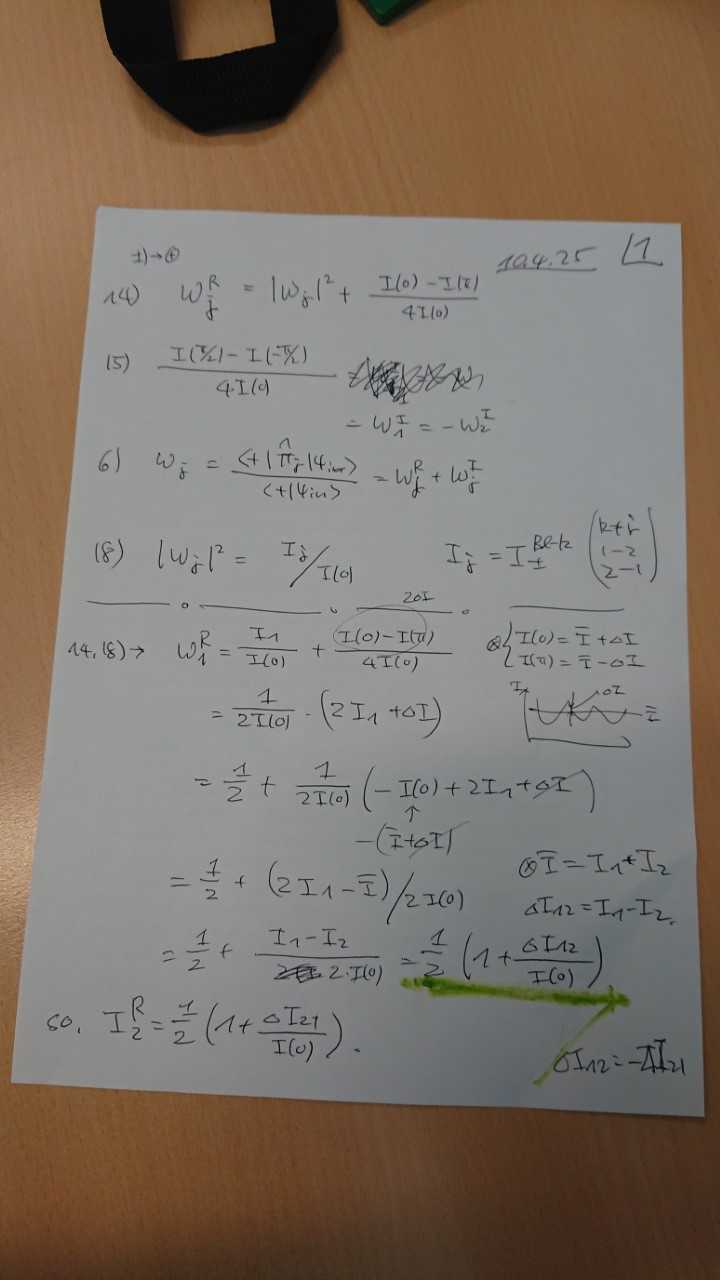 10.4.25 1
±)→⊕
14) w_j^R = |w_j|² + (I(0) - I(π))/4I(0)
15) (I(π/2) - I(-π/2))/4I(0)
= w_1^I = -w_2^I
6) w_j = <+|π̂_j|ψ_in>/<+|ψ_in> = w_j^R + w_j^I
(8) |w_j|² = I_j/I(0) I_j = I_±
1-2
2-1
2ΔI
14, (8) → w_1^R = I_1/I(0) + (I(0) - I(π))/4I(0) ⊗{ I(0) = Ī + ΔI
I(π) = Ī - ΔI
= 1/2I(0) · (2I_1 + ΔI) I ΔI Ī
= 1/2 + 1/2I(0) (-I(0) + 2I_1 + ΔI)
↑
-(Ī + ΔI)
= 1/2 + (2I_1 - Ī)/2I(0) ⊗ Ī = I_1 + I_2
ΔI_12 = I_1 - I_2.
= 1/2 + (I_1 - I_2)/2·I(0) = 1/2 (1 + ΔI_12/I(0))
so, I_2^R = 1/2 (1 + ΔI_21/I(0)).
ΔI_12 = -ΔI_21